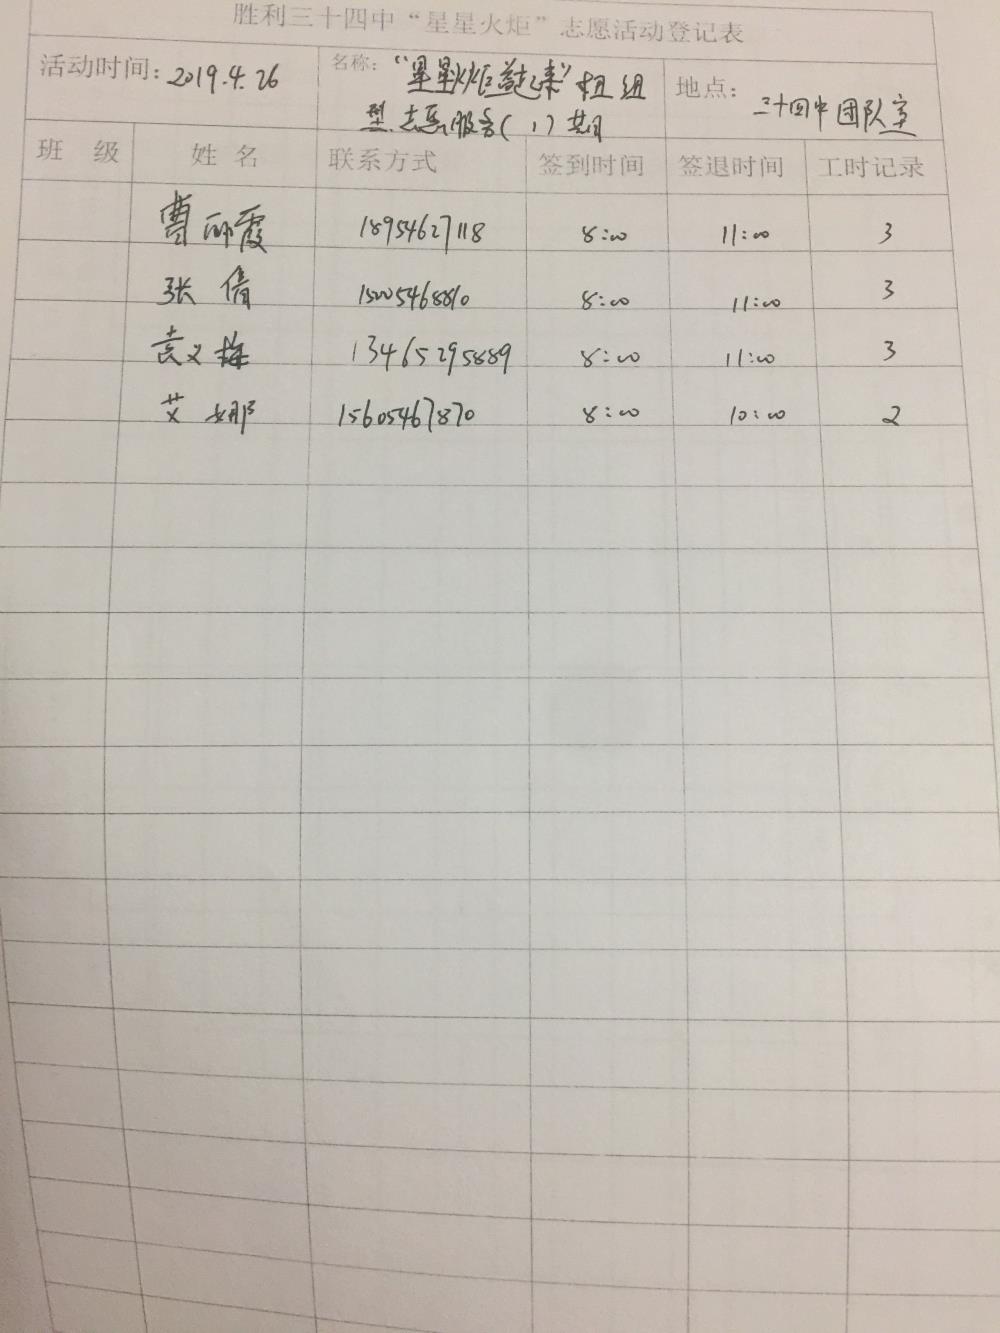 胜利三十四中“星星火炬”志愿活动登记表
活动时间：2019.4.26 名称：“星星火炬益起来”扭扭 地点：三十四中团队室
型志愿服务（1）期
班 级 姓 名 联系方式 签到时间 签退时间 工时记录
曹丽霞 18954627118 8:00 11:00 3
张倩 15005468810 8:00 11:00 3
袁义梅 13465295889 8:00 11:00 3
艾娜 15605467870 8:00 10:00 2